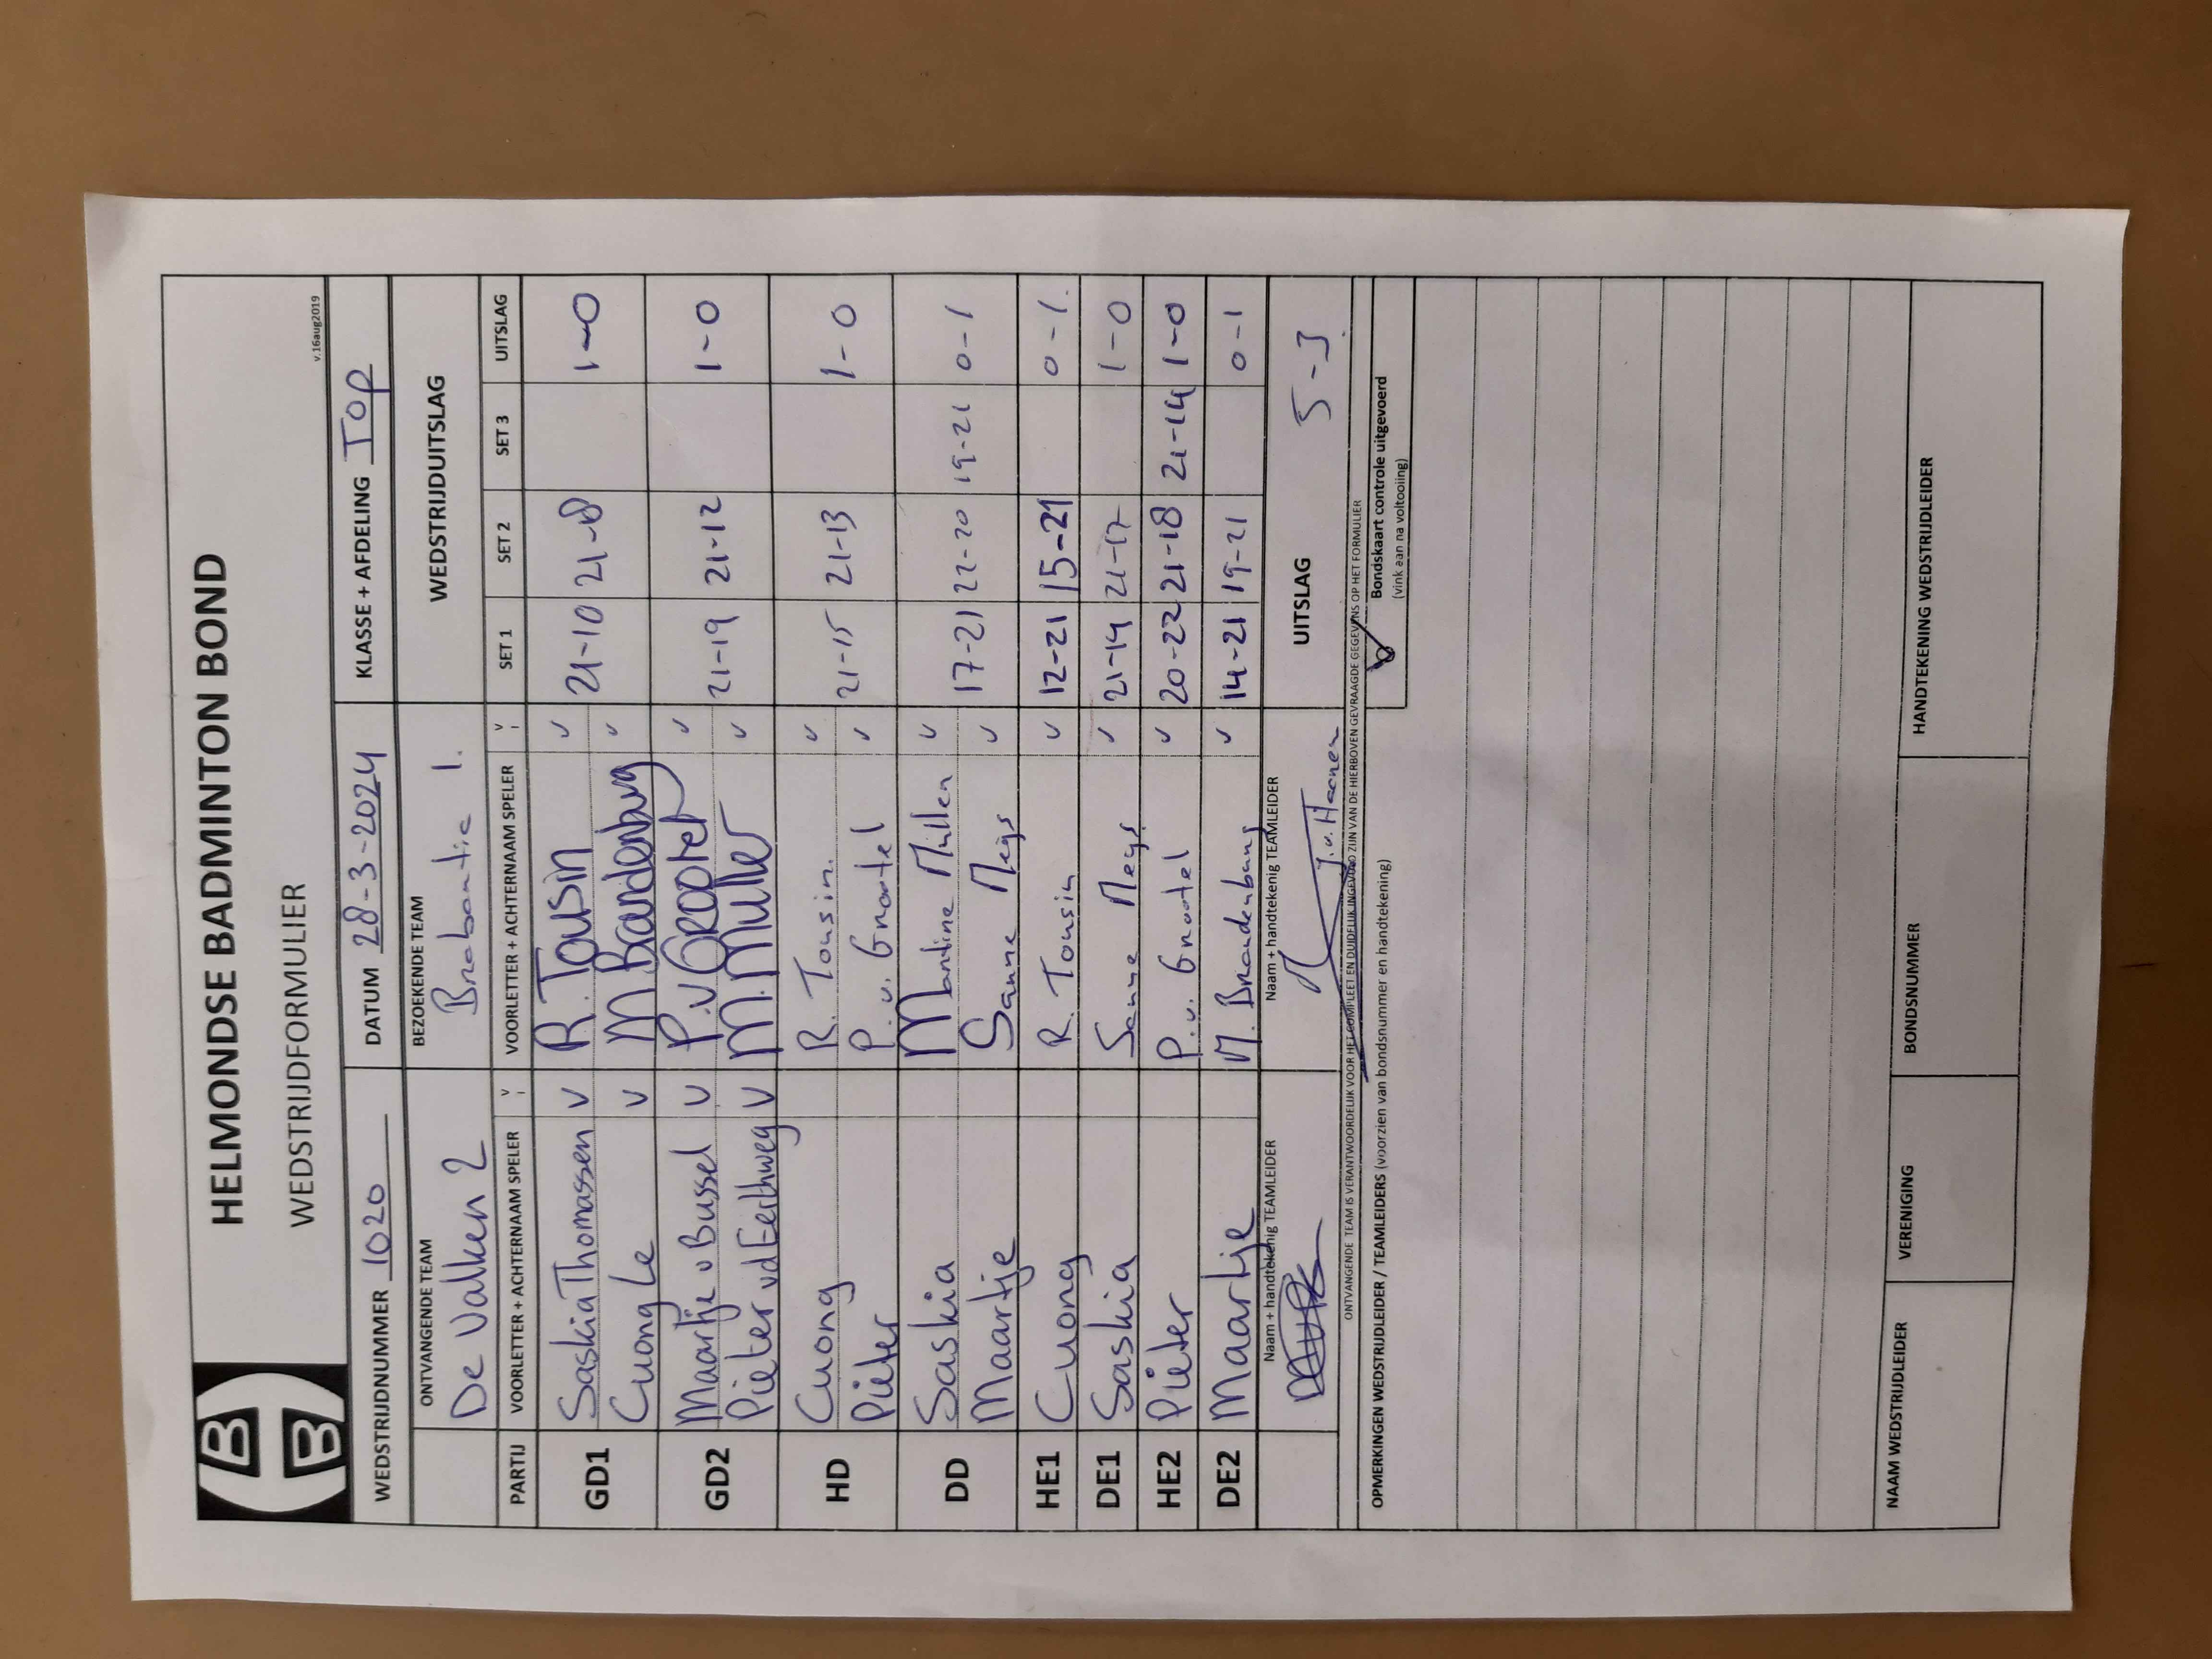 HELMONDSE BADMINTON BOND
WEDSTRIJDFORMULIER
v.16aug2019
WEDSTRIJDNUMMER 1020 DATUM 28-3-2024 KLASSE + AFDELING Top
ONTVANGENDE TEAM BEZOEKENDE TEAM WEDSTRIJDUITSLAG
De Valken 2 Brabantia 1.
PARTIJ VOORLETTER + ACHTERNAAM SPELER V VOORLETTER + ACHTERNAAM SPELER V SET 1 SET 2 SET 3 UITSLAG
GD1 Saskia Thomassen v R. Tousin v 21-10 21-8 1-0
Cuong Le v M. Brandenburg v
GD2 Maartje v Bussel v P. v Grootel v 21-19 21-12 1-0
Pieter vd Eerthweg v M. Muller v
HD Cuong R. Tousin. v 21-15 21-13 1-0
Pieter P. v. Grootel v
DD Saskia Martine Müller v 17-21 22-20 19-21 0-1
Maartje Sanne Meijs v
HE1 Cuong R. Tousin v 12-21 15-21 0-1.
DE1 Saskia Sanne Megs v 21-14 21-17 1-0
HE2 Pieter P. v. Grootel v 20-22 21-18 21-14 1-0
DE2 Maartje M. Brandenburg v 14-21 19-21 0-1
Naam + handtekenig TEAMLEIDER Naam + handtekenig TEAMLEIDER UITSLAG 5-3
J. v. Heenen
ONTVANGENDE TEAM IS VERANTWOORDELIJK VOOR HET COMPLEET EN DUIDELIJK INGEVULD ZIJN VAN DE HIERBOVEN GEVRAAGDE GEGEVENS OP HET FORMULIER
OPMERKINGEN WEDSTRIJDLEIDER / TEAMLEIDERS (voorzien van bondsnummer en handtekening)
Bondskaart controle uitgevoerd
(vink aan na voltooiing)
NAAM WEDSTRIJDLEIDER VERENIGING BONDSNUMMER HANDTEKENING WEDSTRIJDLEIDER